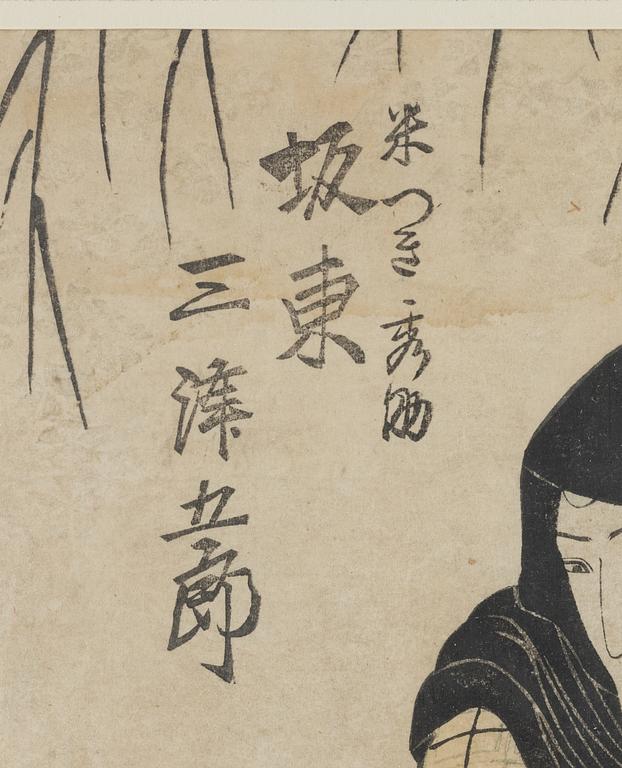 米つき秀助
坂東
三津五郎